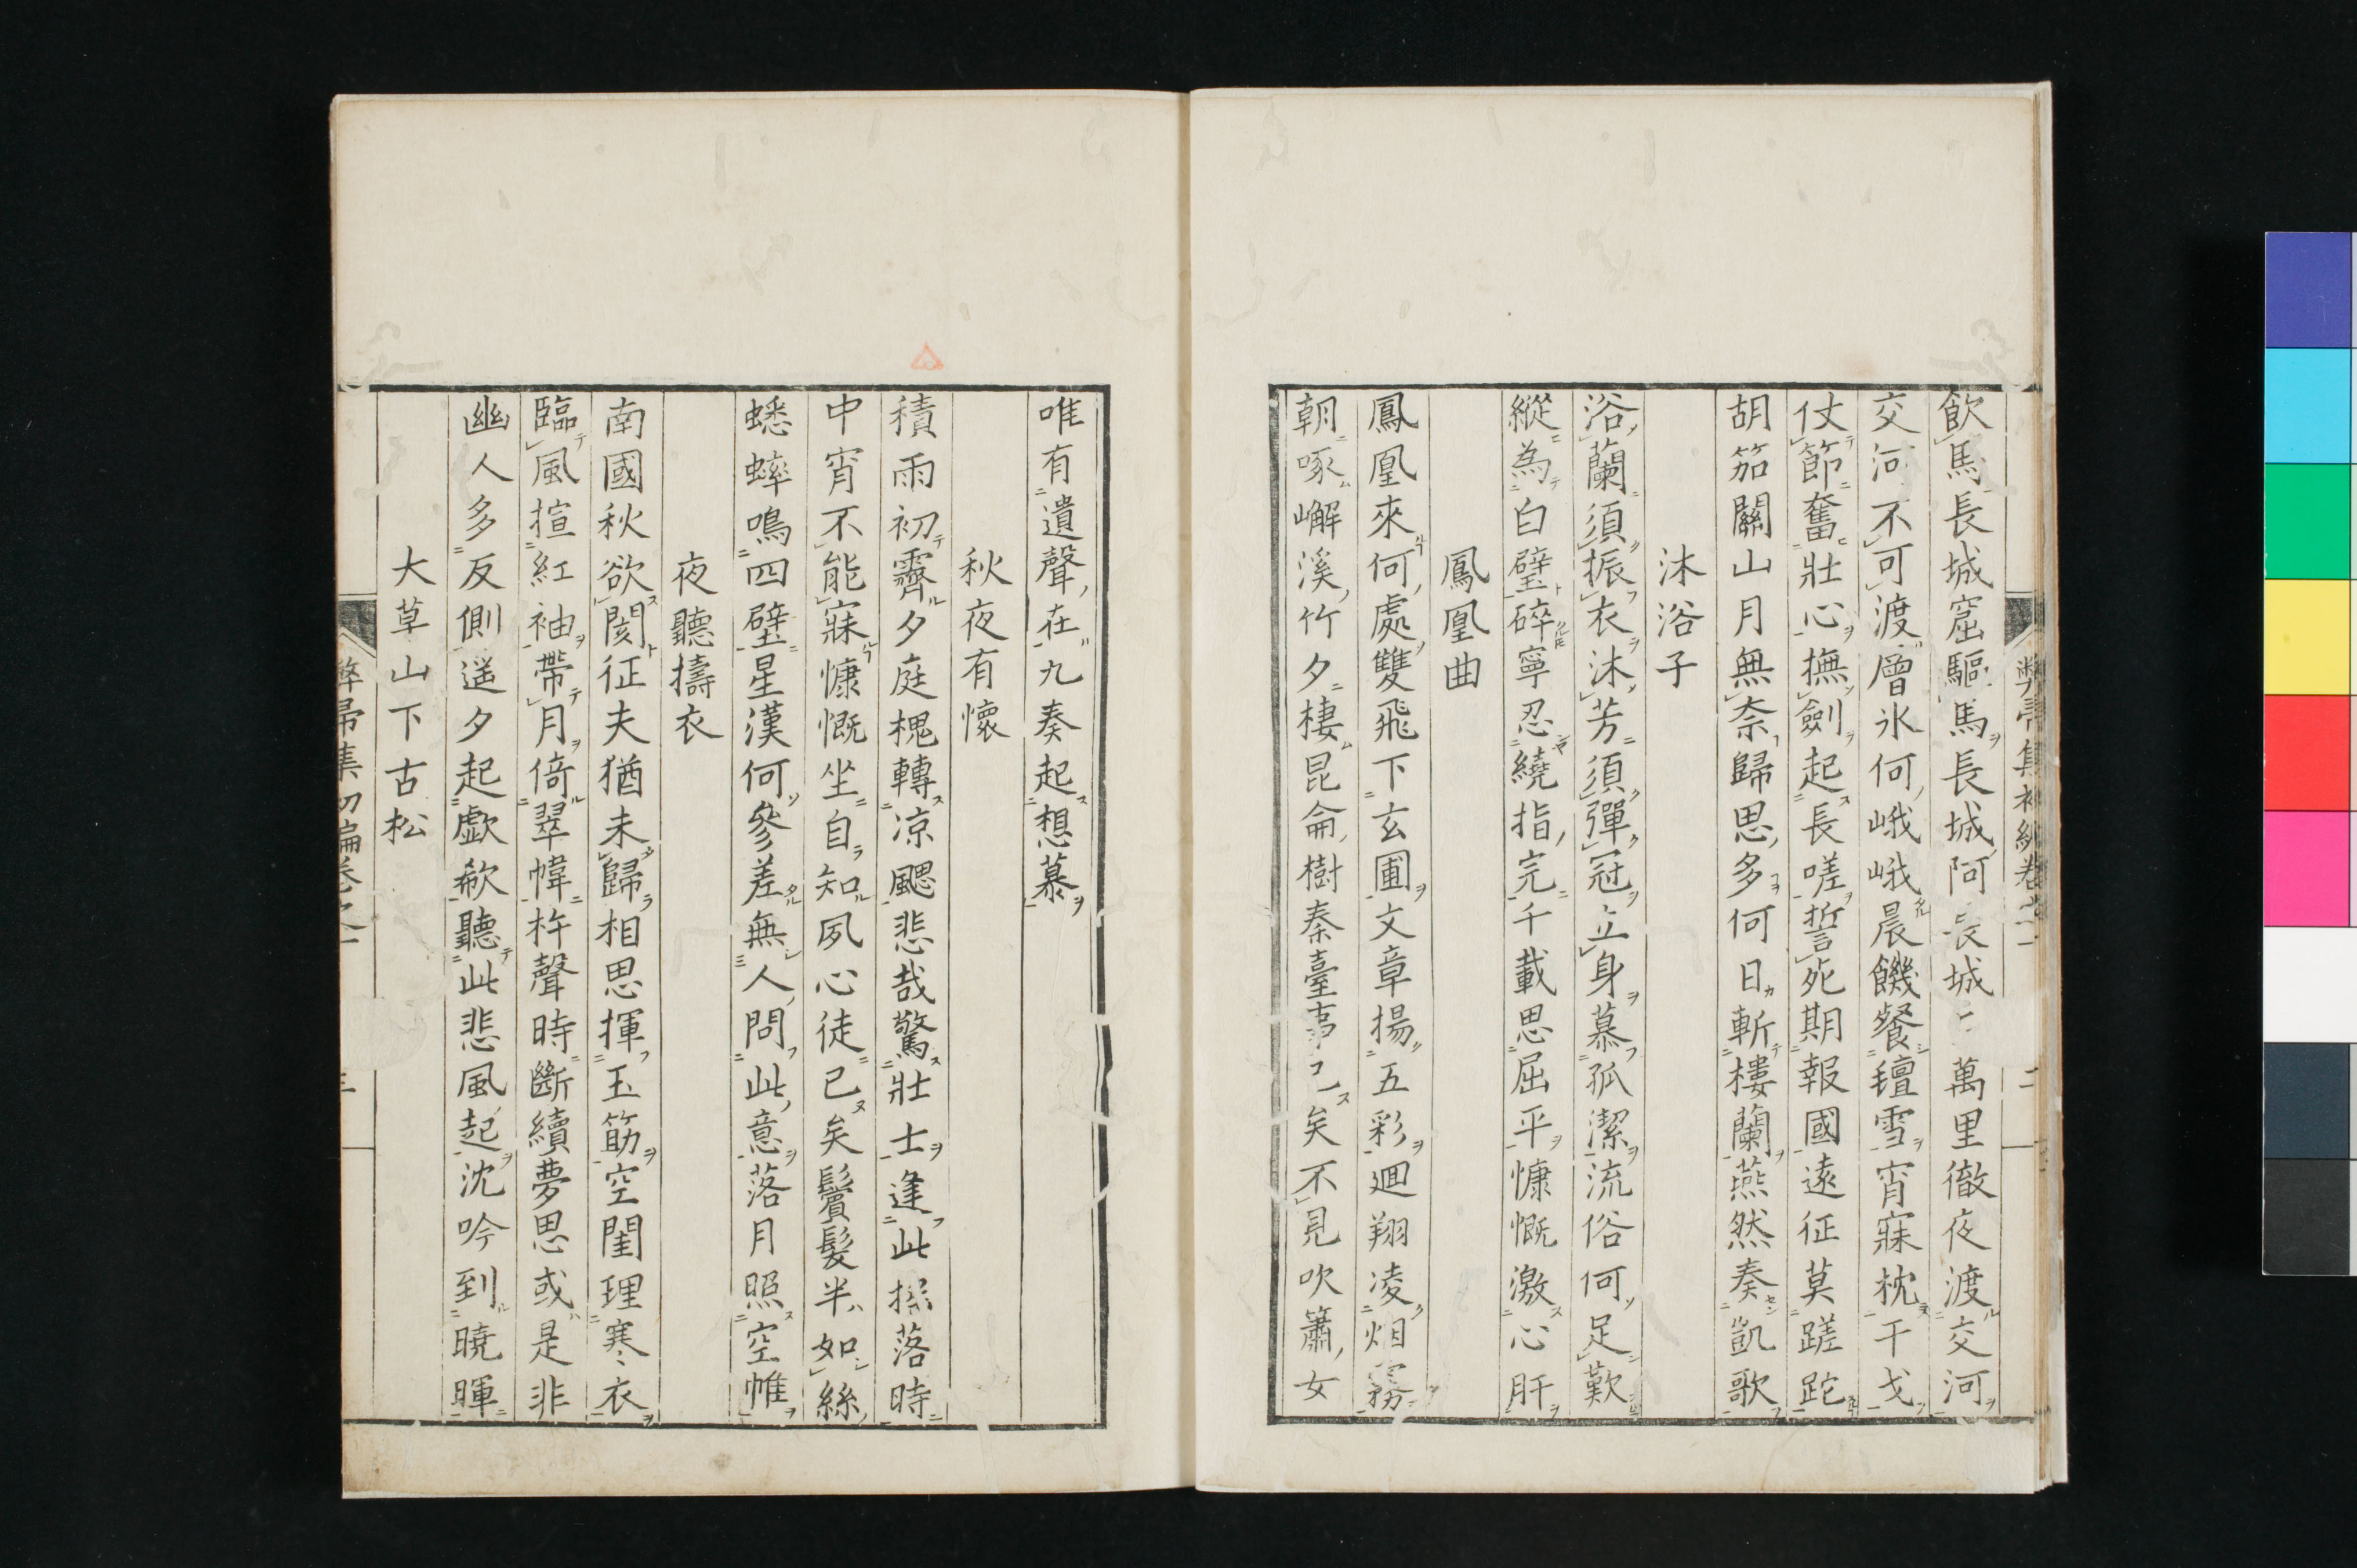 飲馬長城窟驅馬長城阿長城二萬里徹夜渡交河
交河不可渡層氷何峨峨晨饑餐氊雪宵寐枕干戈
仗節奮壯心撫劍起長嗟誓死期報國遠征莫蹉跎
胡笳關山月無奈歸思多何日斬樓蘭燕然奏凱歌
沐浴子
浴蘭須振衣沐芳須彈冠立身慕孤潔流俗何足歎
縱為白璧碎寧忍繞指完千載思屈平慷慨激心肝
鳳凰曲
鳳凰來何處雙飛下玄圃文章揚五彩廻翔凌烟霧
朝啄嶰溪竹夕棲昆侖樹秦臺事已矣不見吹簫女
唯有遺聲在九奏起想慕
秋夜有懷
積雨初霽夕庭槐轉凉颸悲哉驚壯士逢此搖落時
中宵不能寐慷慨坐自知夙心徒已矣鬢髮半如絲
蟋蟀鳴四壁星漢何參差無人問此意落月照空帷
夜聽擣衣
南國秋欲閡征夫猶未歸相思揮玉筯空閨理寒衣
臨風揎紅袖帶月倚翠幃杵聲時斷續夢思或是非
幽人多反側遥夕起歔欷聽此悲風起沈吟到曉暉
大草山下古松
弊帚集初編卷之一 三
弊帚集初編卷之一 二